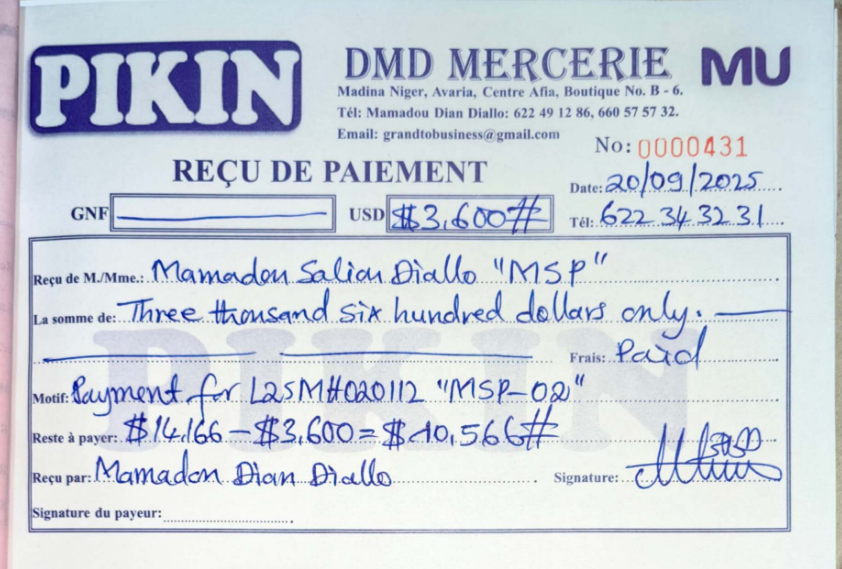 PIKIN
DMD MERCERIE MU
Madina Niger, Avaria, Centre Afia, Boutique No. B - 6.
Tél: Mamadou Dian Diallo: 622 49 12 86, 660 57 57 32.
Email: grandtobusiness@gmail.com
No: 0000431
REÇU DE PAIEMENT
Date: 20/09/2025
GNF USD $3,600#
Tél: 622 34 32 31
Reçu de M./Mme.: Mamadou Saliou Diallo "MSP"
La somme de: Three thousand six hundred dollars only.
Frais: Paid
Motif: Payment for L25MH020112 "MSP-02"
Reste à payer: $14,166 - $3,600 = $10,566#
Reçu par: Mamadou Dian Diallo Signature:
Signature du payeur:
PIKIN